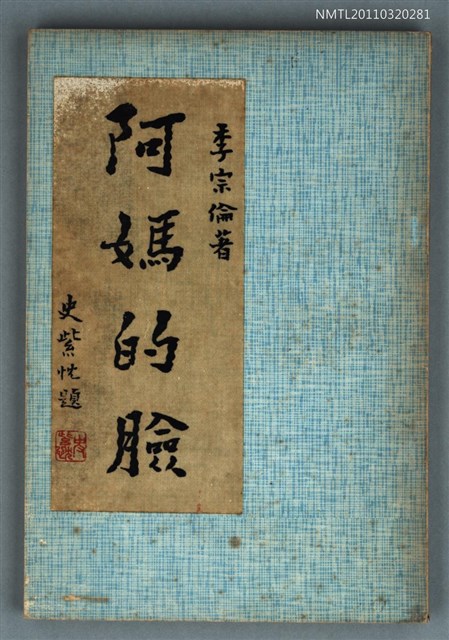 NMTL20110320281
季宗倫著
阿媽的臉
史紫忱題